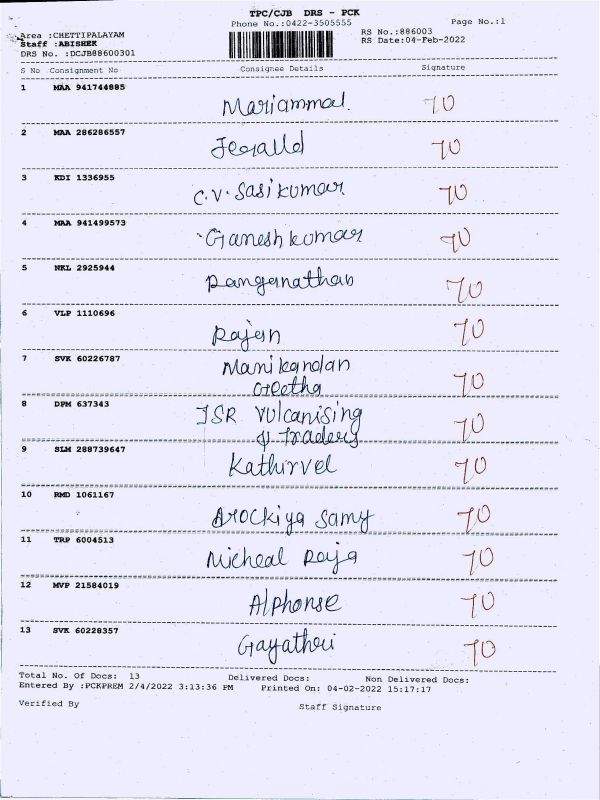 TPC/CJB DRS - PCK
Phone No.:0422-3505555
Page No.:1
Area :CHETTIPALAYAM
RS No.:886003
Staff :ABISHEK
RS Date:04-Feb-2022
DRS No. :DCJB88600301
S No Consignment No Consignee Details Signature
1 MAA 941744885
Mariammal. 70
2 MAA 286286557
Jegalld 70
3 KDI 1336955
C.V. Sasikumar 70
4 MAA 941499573
Ganesh kumar 70
5 NKL 2925944
Ranganathan 70
6 VLP 1110696
Rajan 70
7 SVK 60226787
Manikandan
Geetha 70
8 DPM 637343
JSR Vulcanising
& Traders 70
9 SLM 288739647
Kathirvel 70
10 RMD 1061167
Arockiya Samy 70
11 TRP 6004513
Micheal Raja 70
12 MVP 21584019
Alphonse 70
13 SVK 60228357
Gayathri 70
Total No. Of Docs: 13 Delivered Docs: Non Delivered Docs:
Entered By :PCKPREM 2/4/2022 3:13:36 PM Printed On: 04-02-2022 15:17:17
Verified By Staff Signature